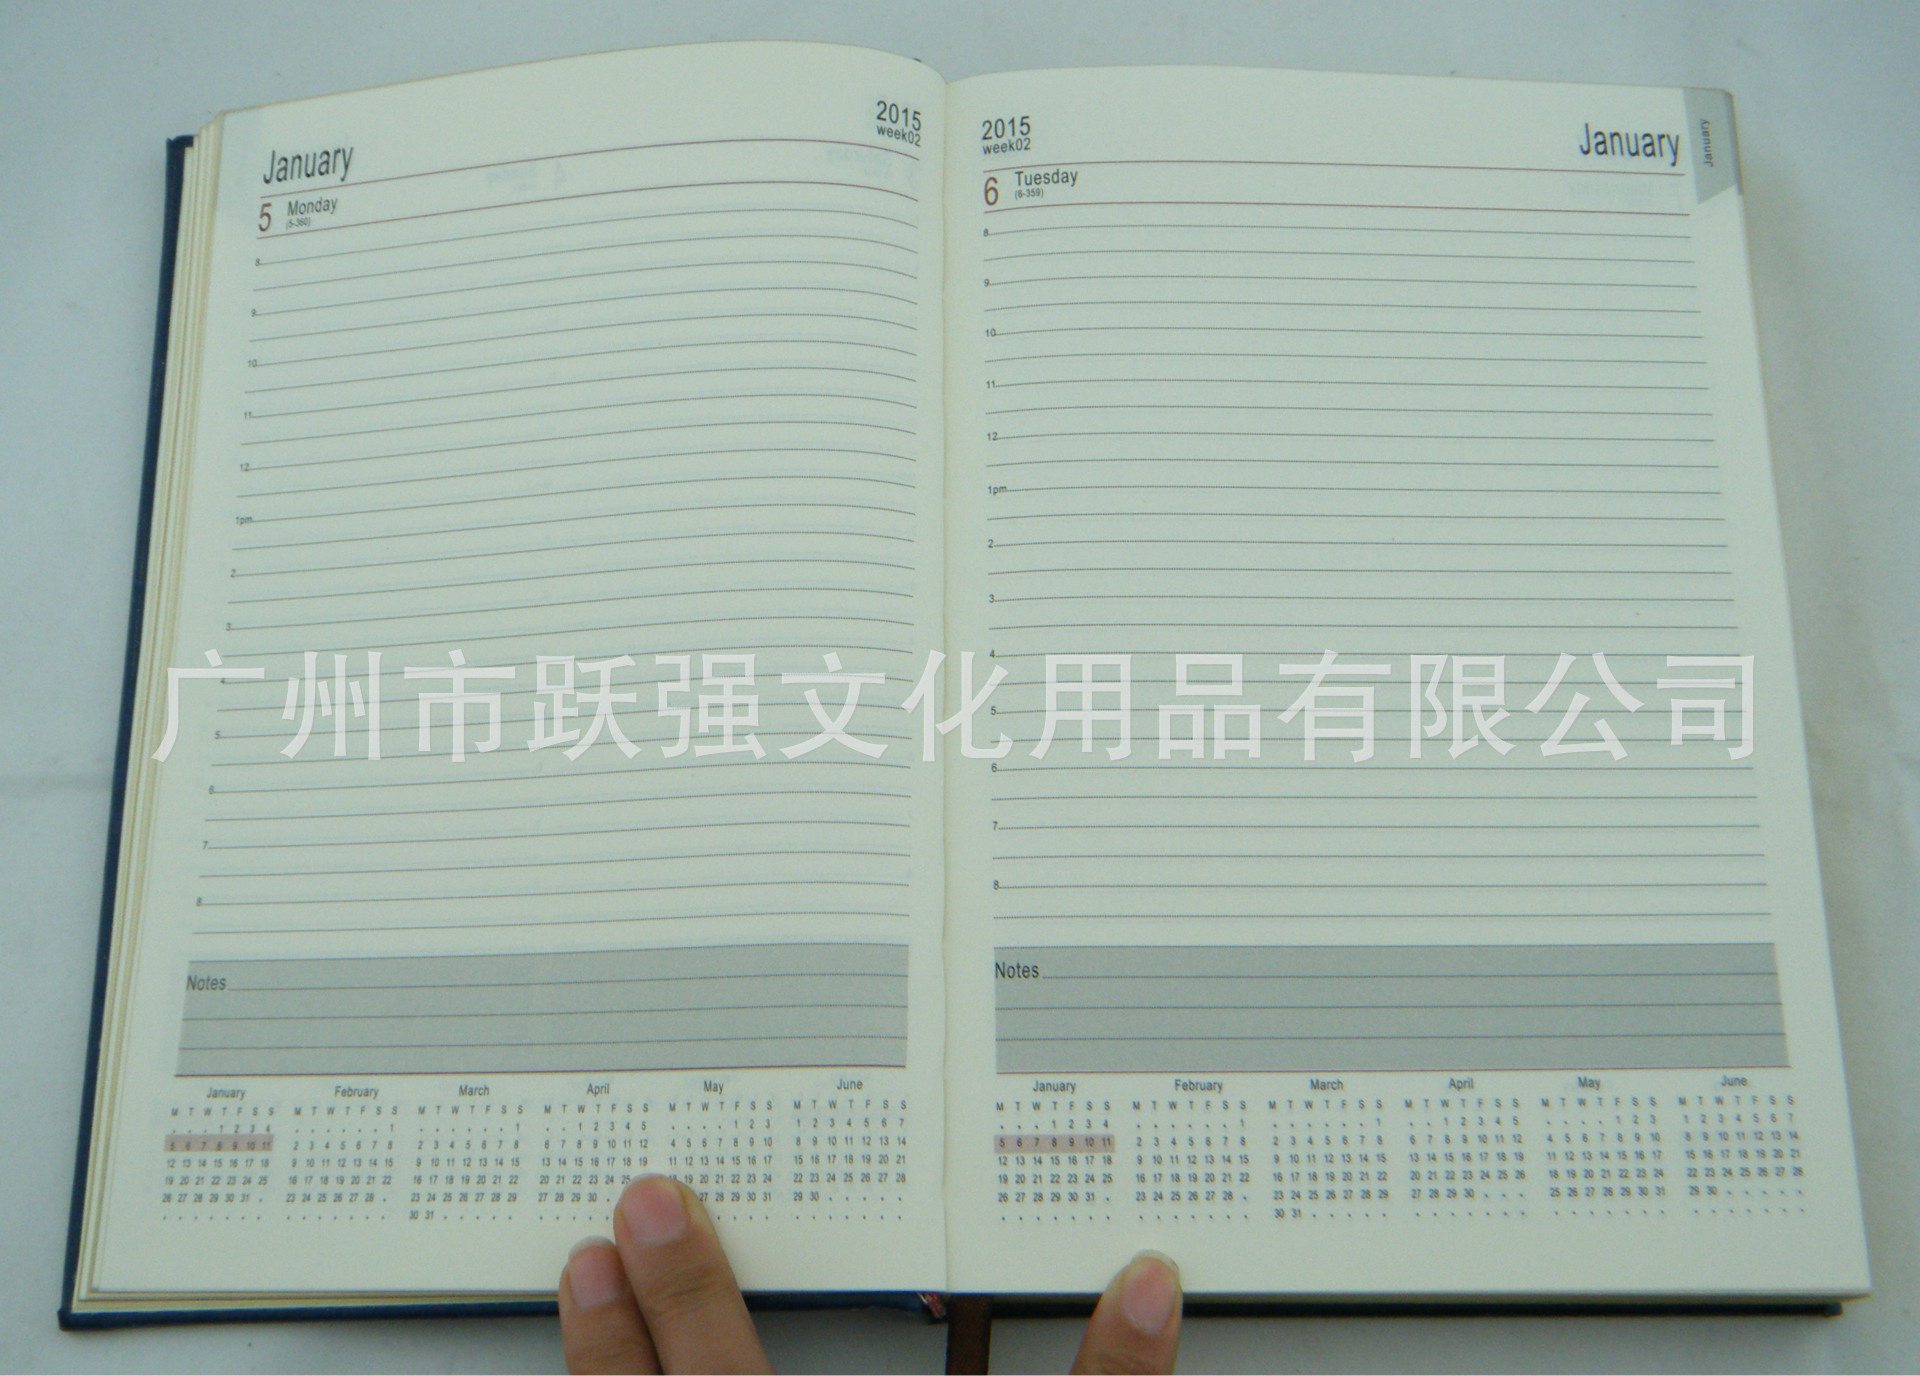 January
2015
week02
5 Monday
(5-360)
8
9
10
11
12
1pm
2
3
4
5
6
7
8
Notes
January February March April May June
M T W T F S S M T W T F S S M T W T F S S M T W T F S S M T W T F S S M T W T F S S
. . . 1 2 3 4 . . . . . . 1 . . . . . . 1 . . 1 2 3 4 5 . . . . 1 2 3 1 2 3 4 5 6 7
5 6 7 8 9 10 11 2 3 4 5 6 7 8 2 3 4 5 6 7 8 6 7 8 9 10 11 12 4 5 6 7 8 9 10 8 9 10 11 12 13 14
12 13 14 15 16 17 18 9 10 11 12 13 14 15 9 10 11 12 13 14 15 13 14 15 16 17 18 19 11 12 13 14 15 16 17 15 16 17 18 19 20 21
19 20 21 22 23 24 25 16 17 18 19 20 21 22 16 17 18 19 20 21 22 20 21 22 23 24 25 19 20 21 22 23 24 22 23 24 25 26 27 28
26 27 28 29 30 31 . 23 24 25 26 27 28 . 23 24 25 26 27 28 29 27 28 29 30 . 27 28 29 30 31 29 30 . . . . .
30 31 . . . . .
2015
week02
January
January
6 Tuesday
(6-359)
8
9
10
11
12
1pm
2
3
4
5
6
7
8
Notes
January February March April May June
M T W T F S S M T W T F S S M T W T F S S M T W T F S S M T W T F S S M T W T F S S
. . . 1 2 3 4 . . . . . . 1 . . . . . . 1 . . 1 2 3 4 5 . . . . 1 2 3 1 2 3 4 5 6 7
5 6 7 8 9 10 11 2 3 4 5 6 7 8 2 3 4 5 6 7 8 6 7 8 9 10 11 12 4 5 6 7 8 9 10 8 9 10 11 12 13 14
12 13 14 15 16 17 18 9 10 11 12 13 14 15 9 10 11 12 13 14 15 13 14 15 16 17 18 19 11 12 13 14 15 16 17 15 16 17 18 19 20 21
19 20 21 22 23 24 25 16 17 18 19 20 21 22 16 17 18 19 20 21 22 20 21 22 23 24 25 26 18 19 20 21 22 23 24 22 23 24 25 26 27 28
26 27 28 29 30 31 . 23 24 25 26 27 28 . 23 24 25 26 27 28 29 27 28 29 30 . . . 25 26 27 28 29 30 31 29 30 . . . . .
30 31 . . . . .
广州市跃强文化用品有限公司